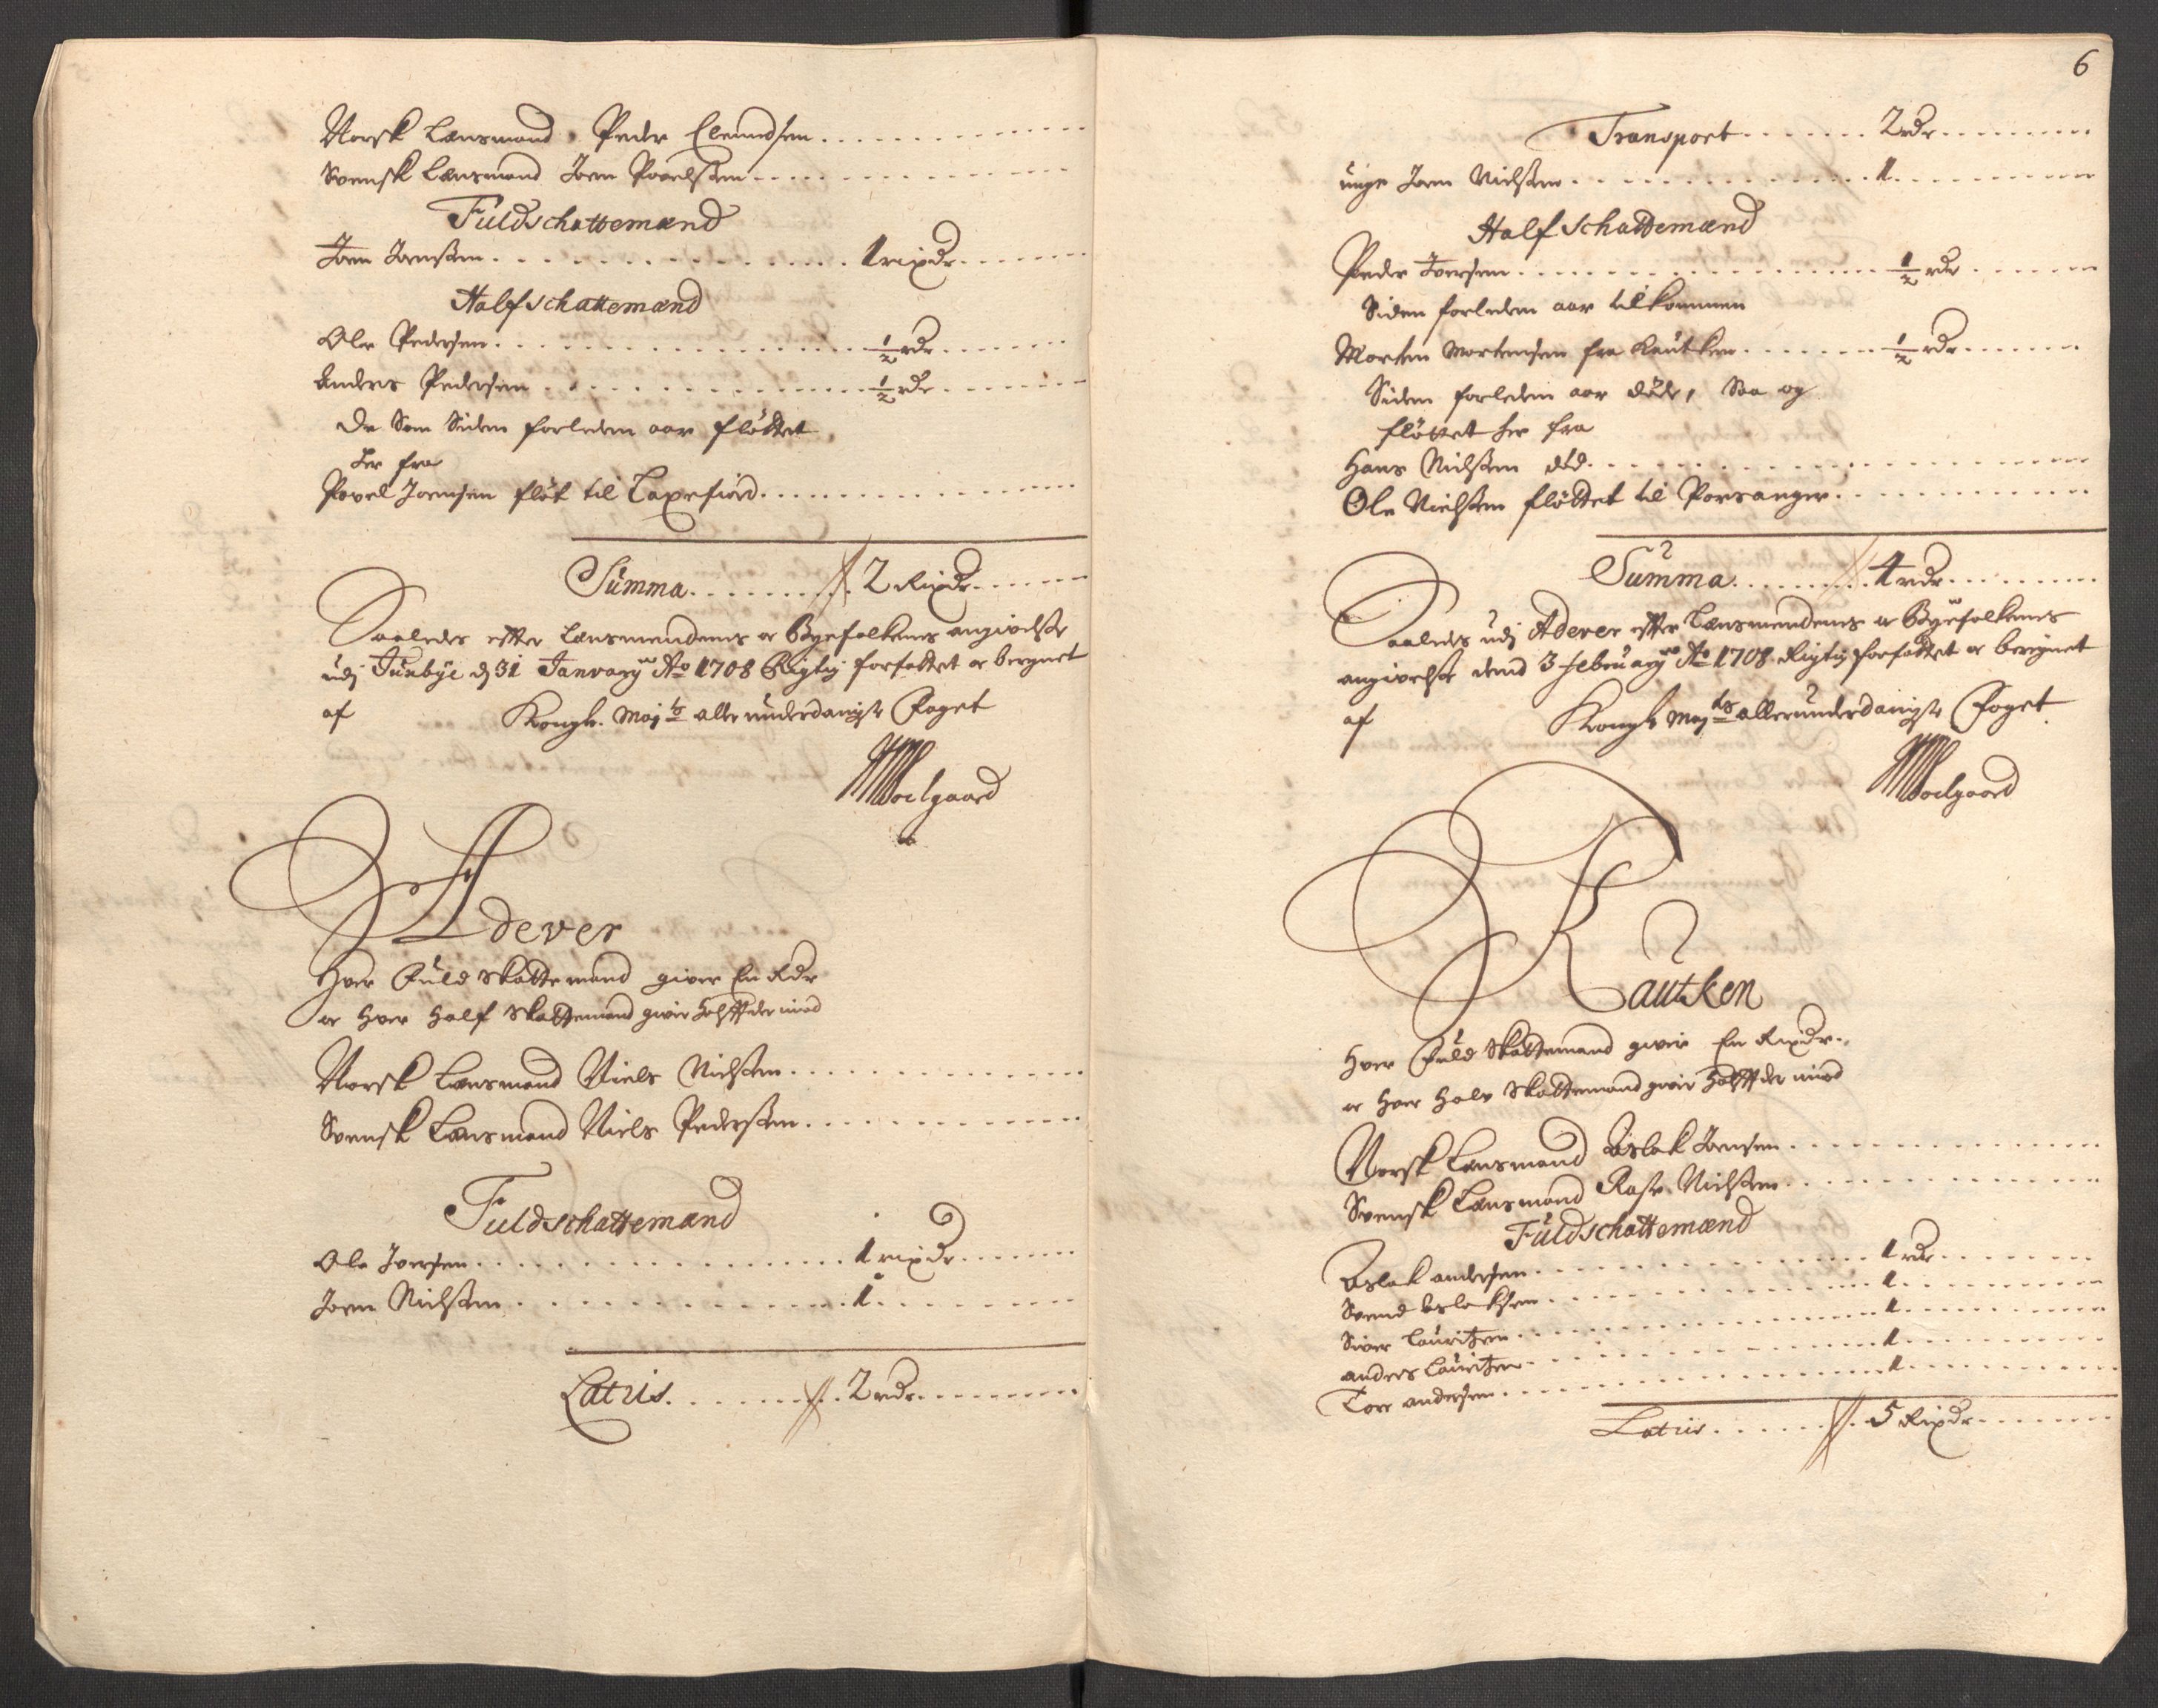 Norsk Lensmand Peder Clemedsen
Svensk Lensmand Joen Povelsen
Fuldschattemænd
Joen Joensen 1 rixdr
Halfschattemænd
Ole Pedersen ½ rdr
Anders Pedersen ½ rdr
De Som Siden forleden aar flöttet
her fra
Povel Joensen flöt til Laxefiord
Summa 2 Rixdr
Saaledes efter Lensmendenes oc Byefolkenes angivelse
udj Junbye d 31 January Ao 1708 Rigtig forfattet oc beregnet
af Kongl. Maj ts allerunderdanigste Foget
Adever
Hver Fuld Skattemand giver En Rdr
oc Hver Half Skattemand giver Helffte der imod
Norsk Lensmand Niels Nielsen
Svensk Lensmand Niels Pedersen
Fuldschattemænd
Ole Iversen 1 rixdr
Joen Nielsen 1
Latus 2 rdr
6
Transport 2 rdr
unge Joen Nielsen 1
Half Schattemænd
Peder Iversen ½ rdr
Siden forleden aar tilkommen
Morten Mortensen fra Kautken ½ rdr
Siden forleden aar döde, Saa og
flöttet her fra
Hans Nielsen död
Ole Nielsen flöttet til Porsanger
Summa 4 rdr
Saaledes udj Adever efter Lensmendenes oc Byefolkenes
angivelse dend 3 february Ao 1708 Rigtig forfattet oc beregnet
af Kongl Maj ts allerunderdanigste Foget
Kautken
Hver Fuld Skattemand giver En Rixdr.
oc Hver Halv Skattemand giver Helffte der imod
Norsk Lensmand Aslak Joensen
Svensk Lensmand Nielsen
Fuldschattemænd
Aslak andersen 1 rdr
Svend Aslaksen 1
Siver Lauritzen 1
anders Lauritzen 1
Tore andersen 1
Latus 5 Rixdr